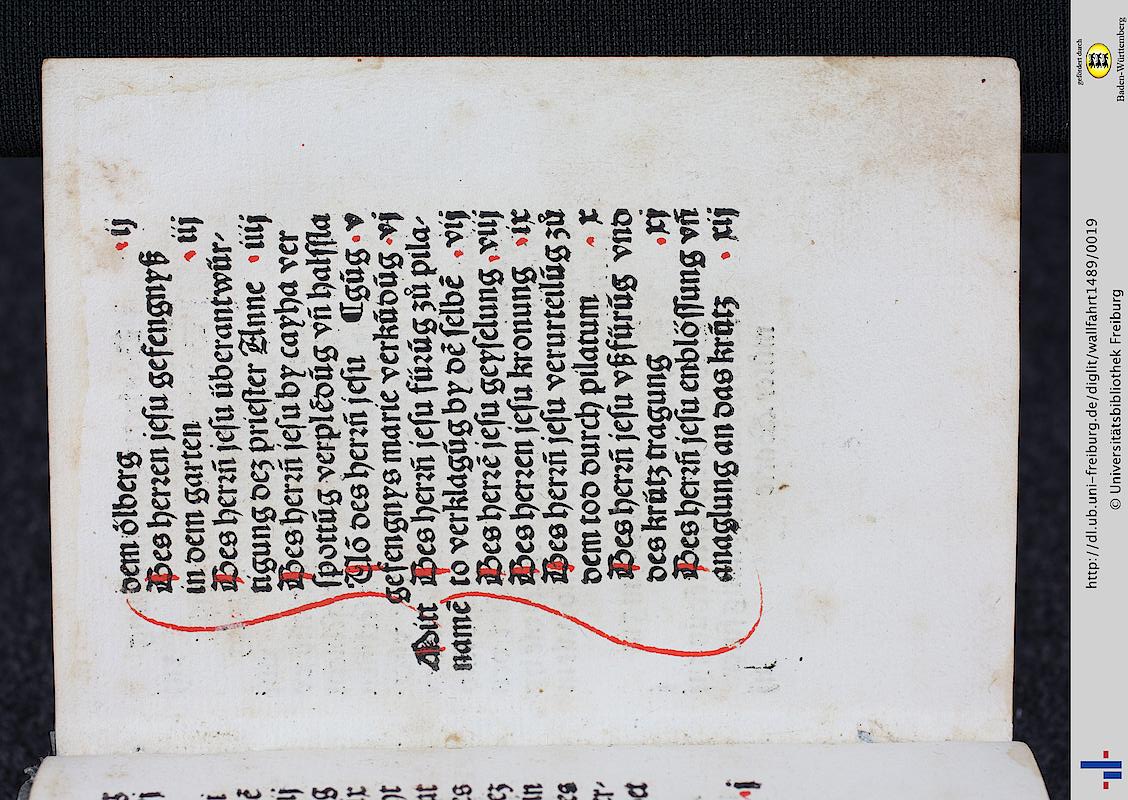 dem ölberg ·ij
Des herren jesu gefengnyß
in dem garten ·iij
Des herrn̄ jesu überantwür⸗
tigung dez priester Anne ·iiij
Des herrn̄ jesu by cayha ver
spottūg verplēdūg vn̄ halsſla
Uō des herrn̄ jesu ⸿gūg ·v
gefengnys marie verkūdūg ·vj
Mitt
namē
Des herrn̄ jesu fürūg zů pila⸗
to verklagūg by dē selbē ·vij
Des herrē jesu geyselung ·viij
Des herren jesu kronung ·ix
Des herrn̄ jesu verurteilūg zů
dem tod durch pilatum ·x
Des herrn̄ jesu vßfürūg vnd
des krütz tragung ·xj
Des herrn̄ jesu enblössung vn̄
anaglung an das krütz ·xij
gefördert durch
Baden-Württemberg
http://dl.ub.uni-freiburg.de/diglit/wallfahrt1489/0019
© Universitätsbibliothek Freiburg